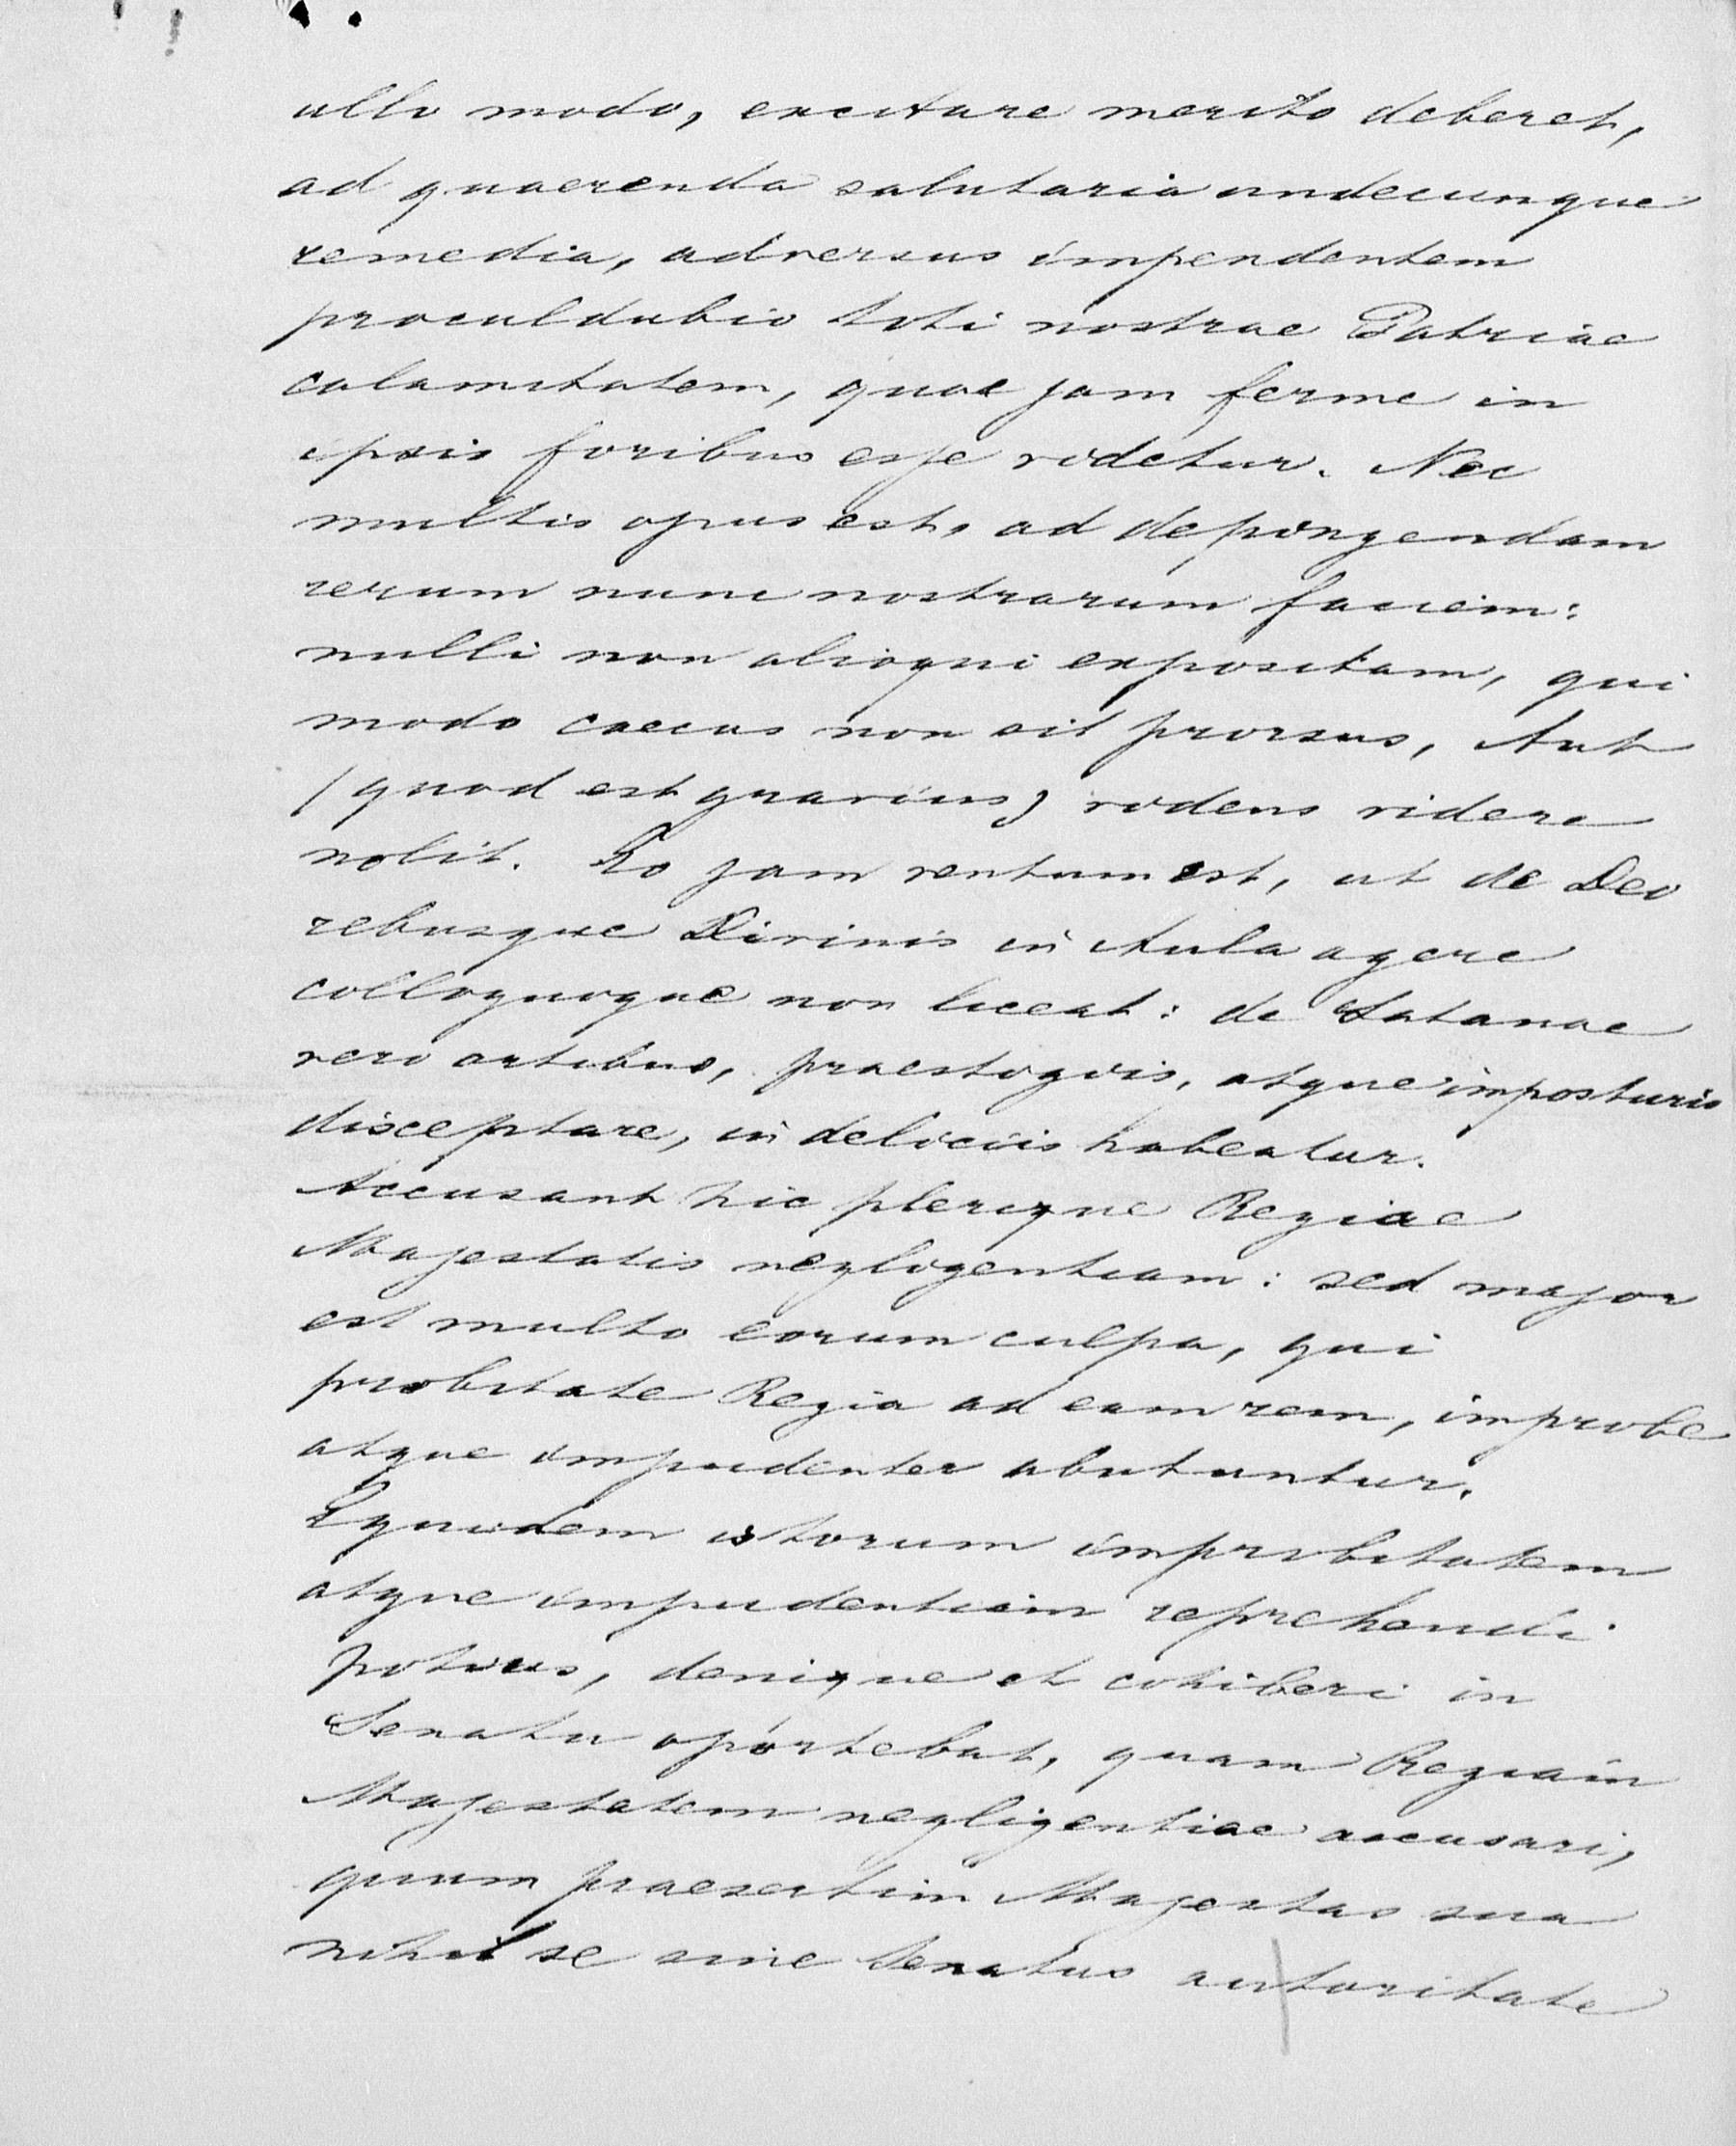 ullo modo, excitare merito deberet,
ad quaerenda salutaria undecunque
remedia, adversus impendentem
proculdubio toti nostrae Patriae
calamitatem, quae jam ferme in
ipsis foribus esse videtur. Nec
multis opus est, ad depingendam
rerum nunc nostrarum faciem:
nulli non alioqui expositam, qui
modo caecus non sit prorsus, Aut
(quod est gravius) videns videre
nolit. Eo jam ventum est, ut de Deo
rebusque Divinis in Aula agere
colloquoque non liceat: de Satanae
vero artibus, praestigiis, atque imposturis
disceptare, in deliciis habeatur.
Accusant hic plerique Regiae
Majestatis negligentiam: sed major
est multo eorum culpa, qui
probitate Regia ad eam rem, improbe
atque impudenter abutuntur.
Equidem istorum improbitatem
atque impudentiam reprehendi
potius, denique et cohiberi in
Senatu oportebat, quam Regiam
Majestatem negligentiae accusari,
quum praesertim Majestas sua
nihil se sine Senatus autoritate